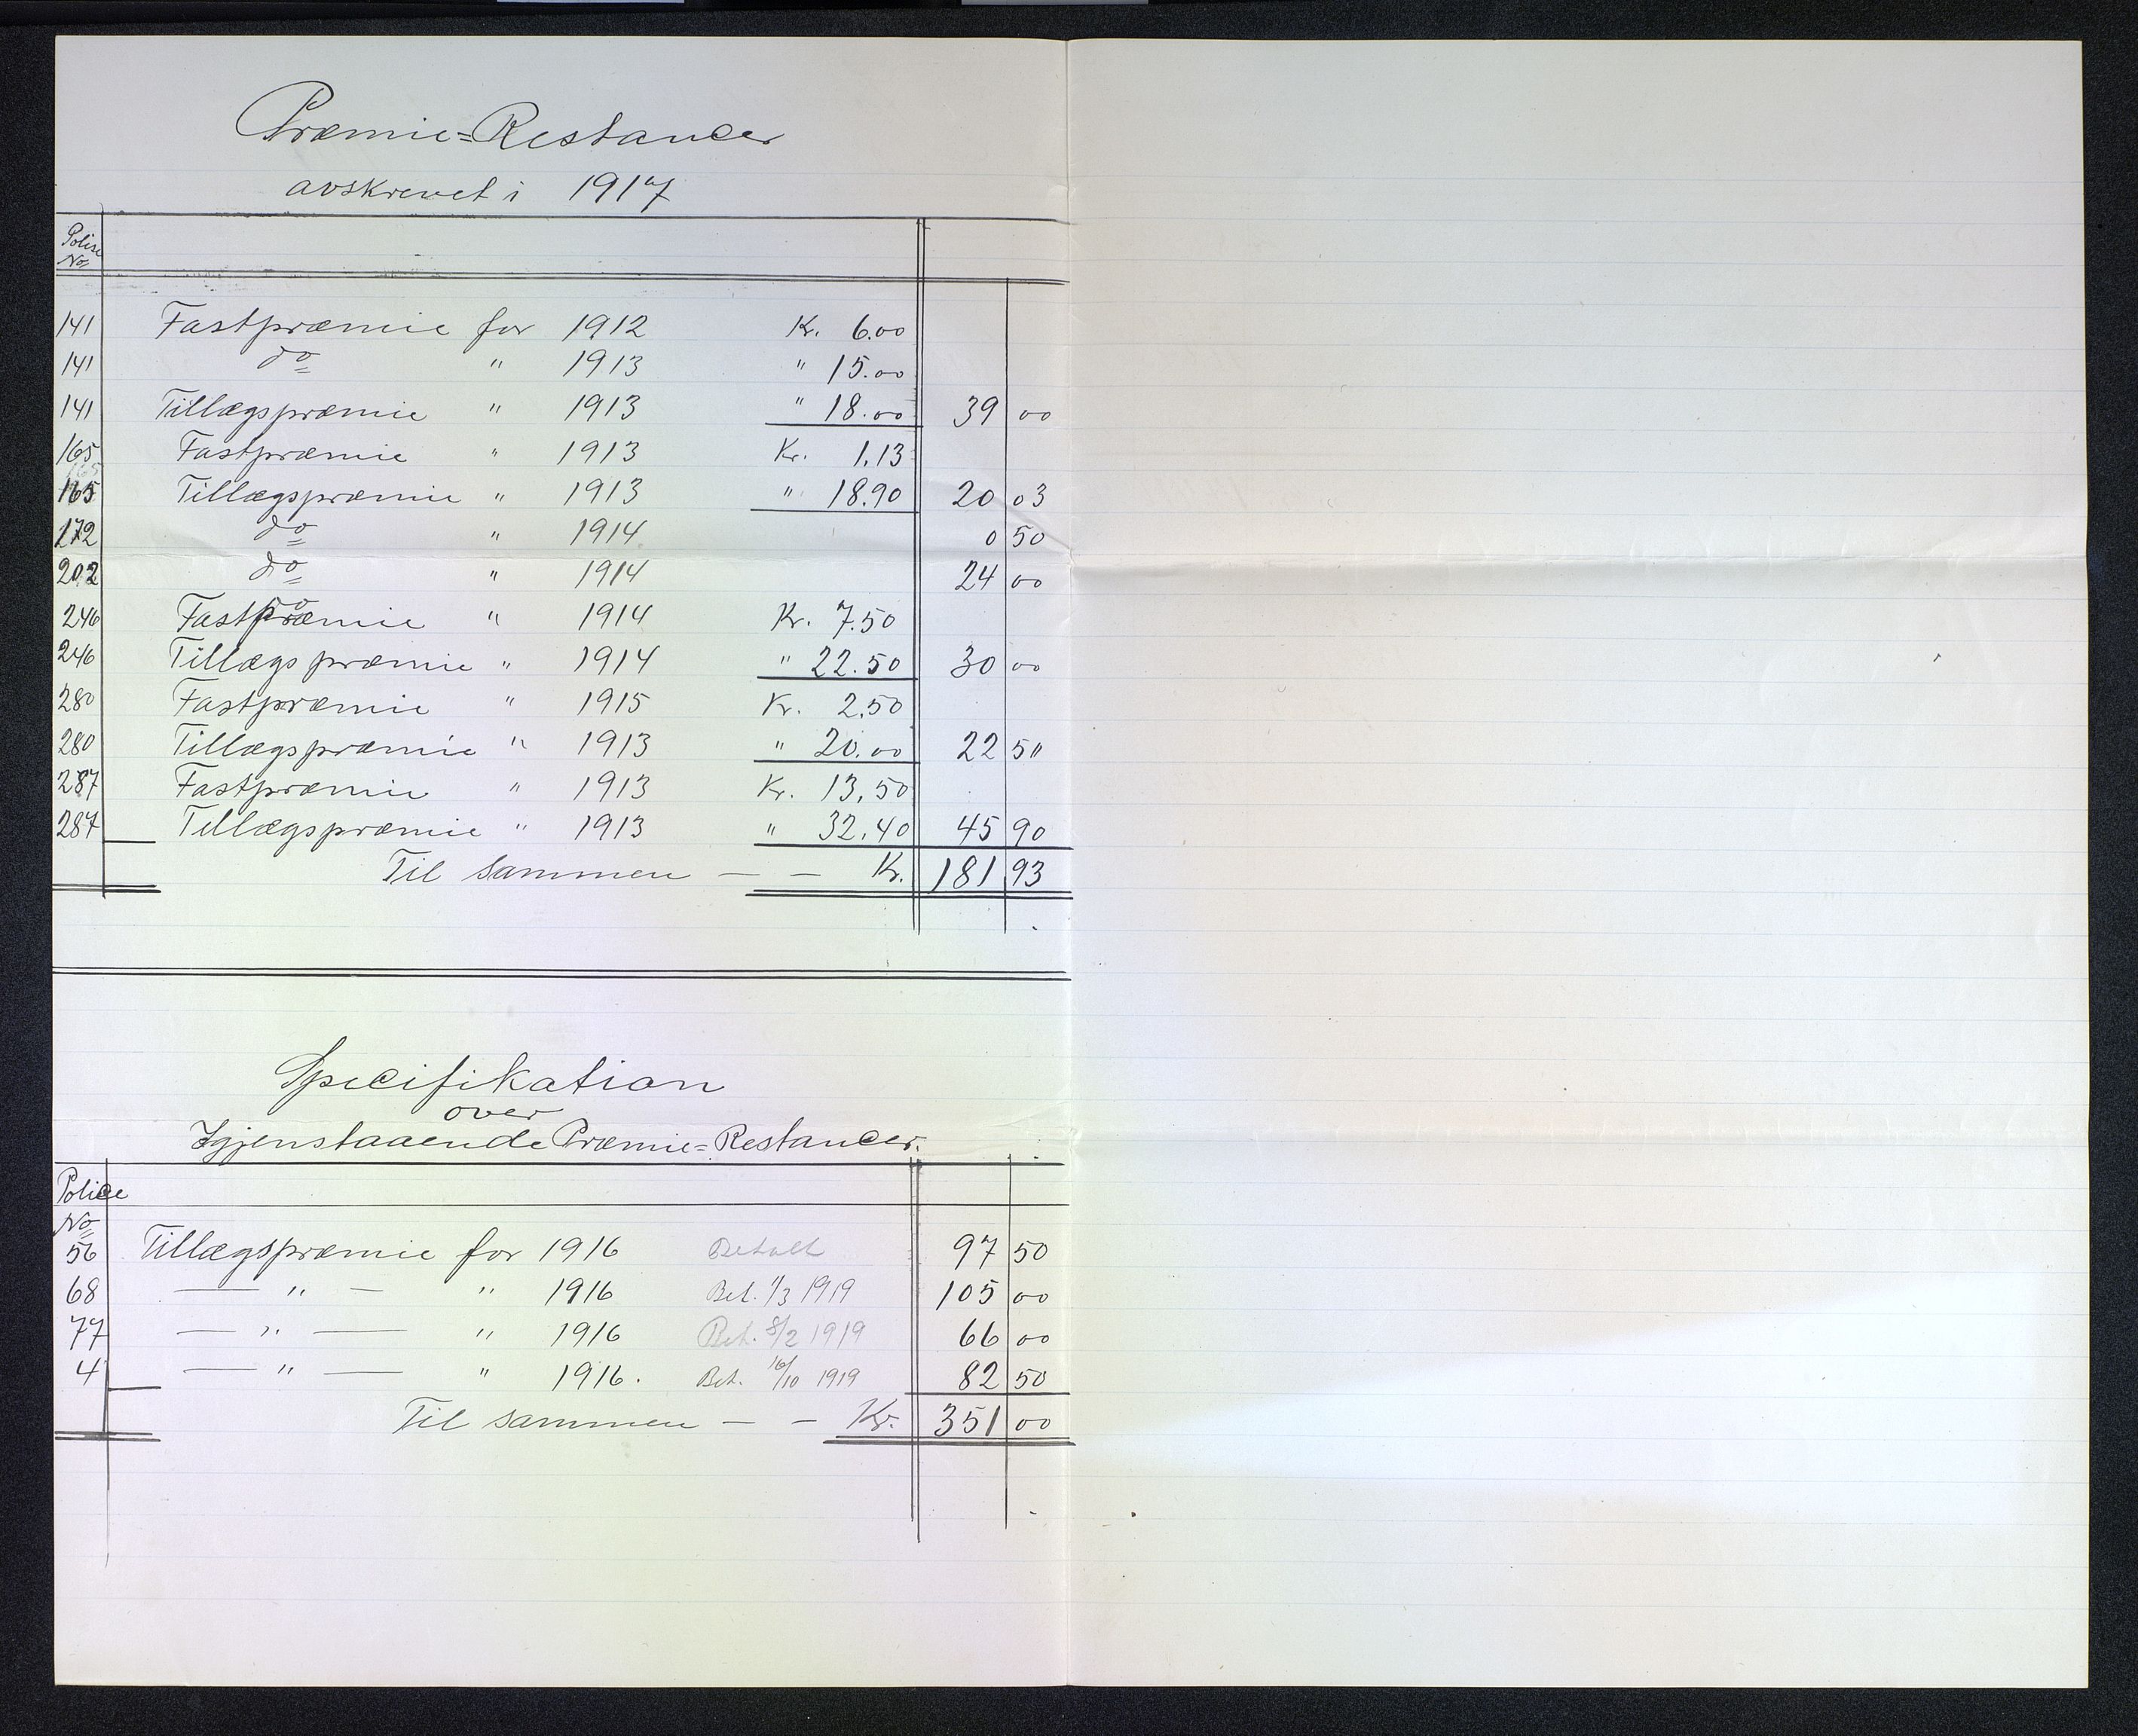 Præmie=Restancer
avskrevet i 1917
Police
No
141 Fastpræmie for 1912 Kr. 6.00
141 do " 1913 " 15.00
141 Tillægspræmie " 1913 " 18.00 39 00
165 Fastpræmie " 1913 Kr. 1.13
165
165 Tillægspræmie " 1913 " 18.90 20 03
172 do " 1914 0 50
202 do " 1914 24 00
246 Fastpræmie " 1914 Kr. 7.50
246 Tillægspræmie " 1914 " 22.50 30 00
280 Fastpræmie " 1915 Kr. 2.50
280 Tillægspræmie " 1913 " 20.00 22 50
287 Fastpræmie " 1913 Kr. 13,50
287 Tillægspræmie " 1913 " 32.40 45 90
Til sammen — — Kr. 181 93
Specifikation
over
Igjenstaaende Præmie=Restancer.
Police
No
56 Tillægspræmie for 1916 Betalt 97 50
68 — " — " 1916 Bet. 1/3 1919 105 00
77 — " — " 1916 Bet. 8/2 1919 66 00
4 — " — " 1916. Bet. 16/10 1919 82 50
Til sammen — — Kr. 351 00